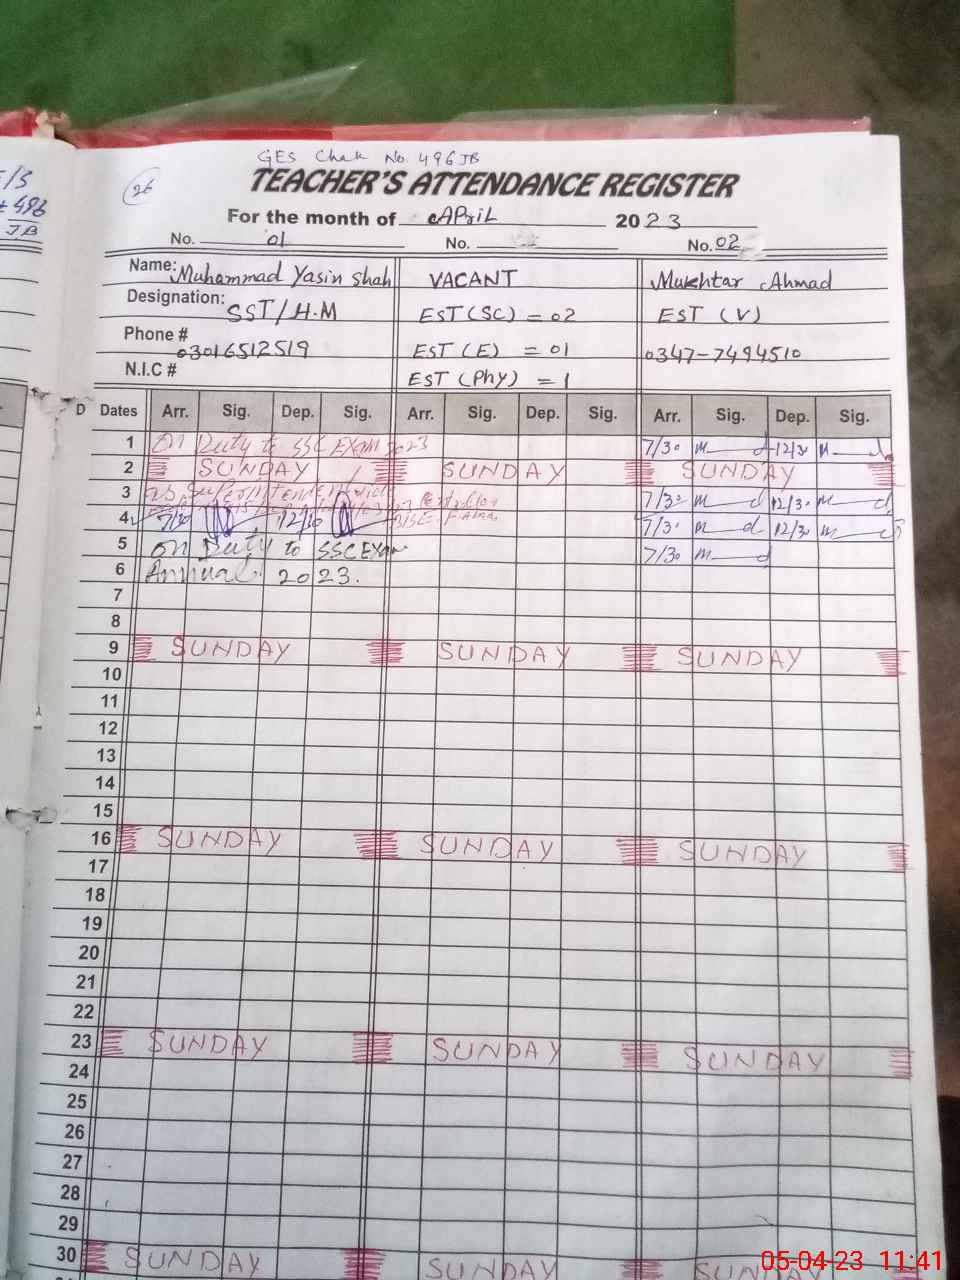 /3
496
J.B
GES Chak No. 496 JB
26
TEACHER'S ATTENDANCE REGISTER
For the month of APriL 2023
No. 01 No. No. 02
Name: Muhammad Yasin Shah VACANT Mukhtar Ahmad
Designation: SST/H.M EST (SC) = 02 EST (V)
Phone # 03016512519 EST (E) = 01 0347-7494510
N.I.C # EST (Phy) = 1
D Dates Arr. Sig. Dep. Sig. Arr. Sig. Dep. Sig. Arr. Sig. Dep. Sig.
1 on Duty to SSC EXAM 2023 7/30 m d 12/30 m d
2 SUNDAY SUNDAY SUNDAY
3 as Superintendent 7/30 m d 12/30 m d
4 7/30 12/30 7/30 m d 12/30 m d
5 on Duty to SSC Exam 7/30 m d
6 Annual 2023.
7
8
9 SUNDAY SUNDAY SUNDAY
10
11
12
13
14
15
16 SUNDAY SUNDAY SUNDAY
17
18
19
20
21
22
23 SUNDAY SUNDAY SUNDAY
24
25
26
27
28
29
30 SUNDAY SUNDAY SUNDAY
05-04-23 11:41